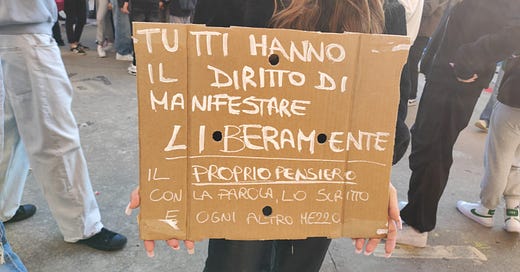 TUTTI HANNO
IL DIRITTO DI
MANIFESTARE
LIBERAMENTE
IL PROPRIO PENSIERO
CON LA PAROLA, LO SCRITTO
E OGNI ALTRO MEZZO